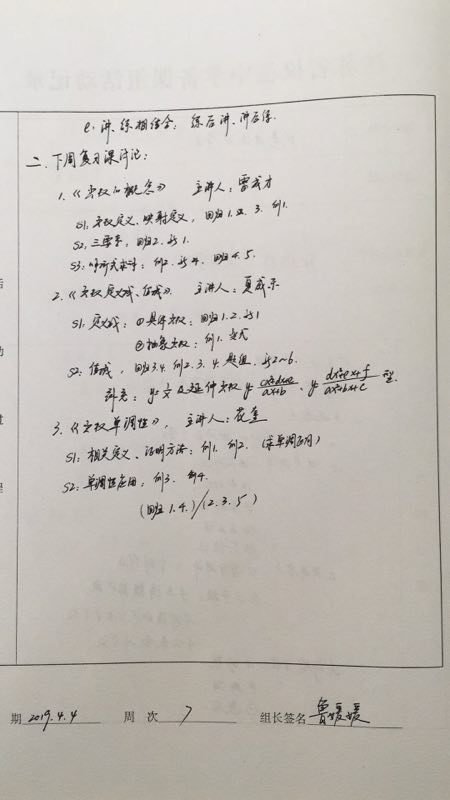 e. 讲、练相结合：练后讲、讲后练.
二、下周复习课讨论：
1.《函数的概念》 主讲人：雷武才
S1: 函数定义、映射定义，回归1. 3. 例1.
S2: 三要素，回归2. 1.
S3: 解析式求法：例2. 4. 回归4. 5.
2.《函数定义域、值域》. 主讲人：夏成永
S1. 定义域：①具体函数：回归1. 2. 1
②抽象函数：例1. 变式
S2: 值域，回归3.4. 例2. 3. 4. 题组. 2~6.
补充： y= 及延伸函数 y= cx+d/ax+b、y= dx²+ex+f/ax²+bx+c 型.
3.《函数单调性》， 主讲人：花奎
S1: 相关定义、证明方法：例1. 例2. (求单调区间)
S2: 单调性应用：例3. 例4.
(回归 1. 4.)/(2. 3. 5)
期 2019.4.4 周 次 7 组长签名 鲁媛媛